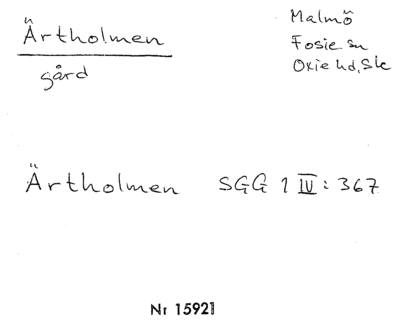 Ärtholmen
gård
Malmö
Fosie sn
Oxie hd, Sk
Ärtholmen SGG 1 IV: 367
Nr 15921